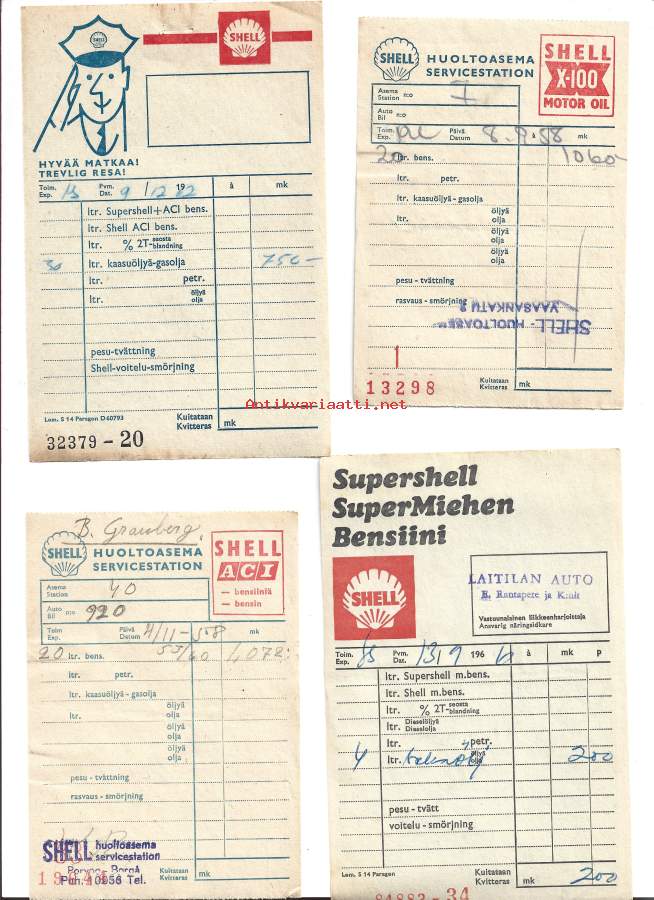 SHELL
SHELL
HYVÄÄ MATKAA!
TREVLIG RESA!
Toim. Exp. Pvm. Dat. 9 / 12 19 à mk
ltr. Supershell+ACI bens.
ltr. Shell ACI bens.
ltr. % 2T-seosta blandning
30 ltr. kaasuöljyä-gasolja 750-
ltr. petr.
ltr. öljyä olja
pesu-tvättning
Shell-voitelu-smörjning
Lom. S 14 Paragon D 60793
Kuitataan
Kvitteras mk
32379 - 20
SHELL
HUOLTOASEMA
SERVICESTATION
SHELL
X-100
MOTOR OIL
Asema
Station n:o I
Auto
Bil n:o
Toim.
Exp. Päivä
Datum 8.9.58 à mk
20 ltr. bens. 1060-
ltr. petr.
ltr. kaasuöljyä-gasolja
ltr. öljyä
olja
öljyä
olja
öljyä
olja
pesu - tvättning
rasvaus - smörjning
SHELL - HUOLTOASE
VAASANKATU 2
1
13298
Kuitataan
Kvitteras mk
Antikvariaatti.net
B. Granberg
SHELL
HUOLTOASEMA
SERVICESTATION
SHELL
ACI
— bensiiniä
— bensin
Asema
Station n:o 40
Auto
Bil n:o 920
Toim
Exp. Päivä
Datum 4/11-58 à mk
20 ltr. bens. 53/60 1072:
ltr. petr.
ltr. kaasuöljyä-gasolja
ltr. öljyä
olja
öljyä
olja
öljyä
olja
pesu - tvättning
rasvaus - smörjning
SHELL huoltoasema
servicestation
Porvoo Borgå
Puh. 10956 Tel.
Kuitataan
Kvitteras mk
Supershell
SuperMiehen
Bensiini
SHELL
LAITILAN AUTO
E. Rantapere ja Knit
Vastuunalainen liikkeenharjoittaja
Ansvarig näringsidkare
Toim.
Exp. Pvm.
Dat. 13/9 196 à mk p
ltr. Supershell m.bens.
ltr. Shell m.bens.
ltr. % 2T-seosta blandning
ltr. Dieselöljyä
Dieselolja
ltr. petr.
4 ltr. öljyä olja 200
pesu - tvätt
voitelu - smörjning
Lom. S 14 Paragon
Kuitataan
Kvitteras mk 200
84882 - 34